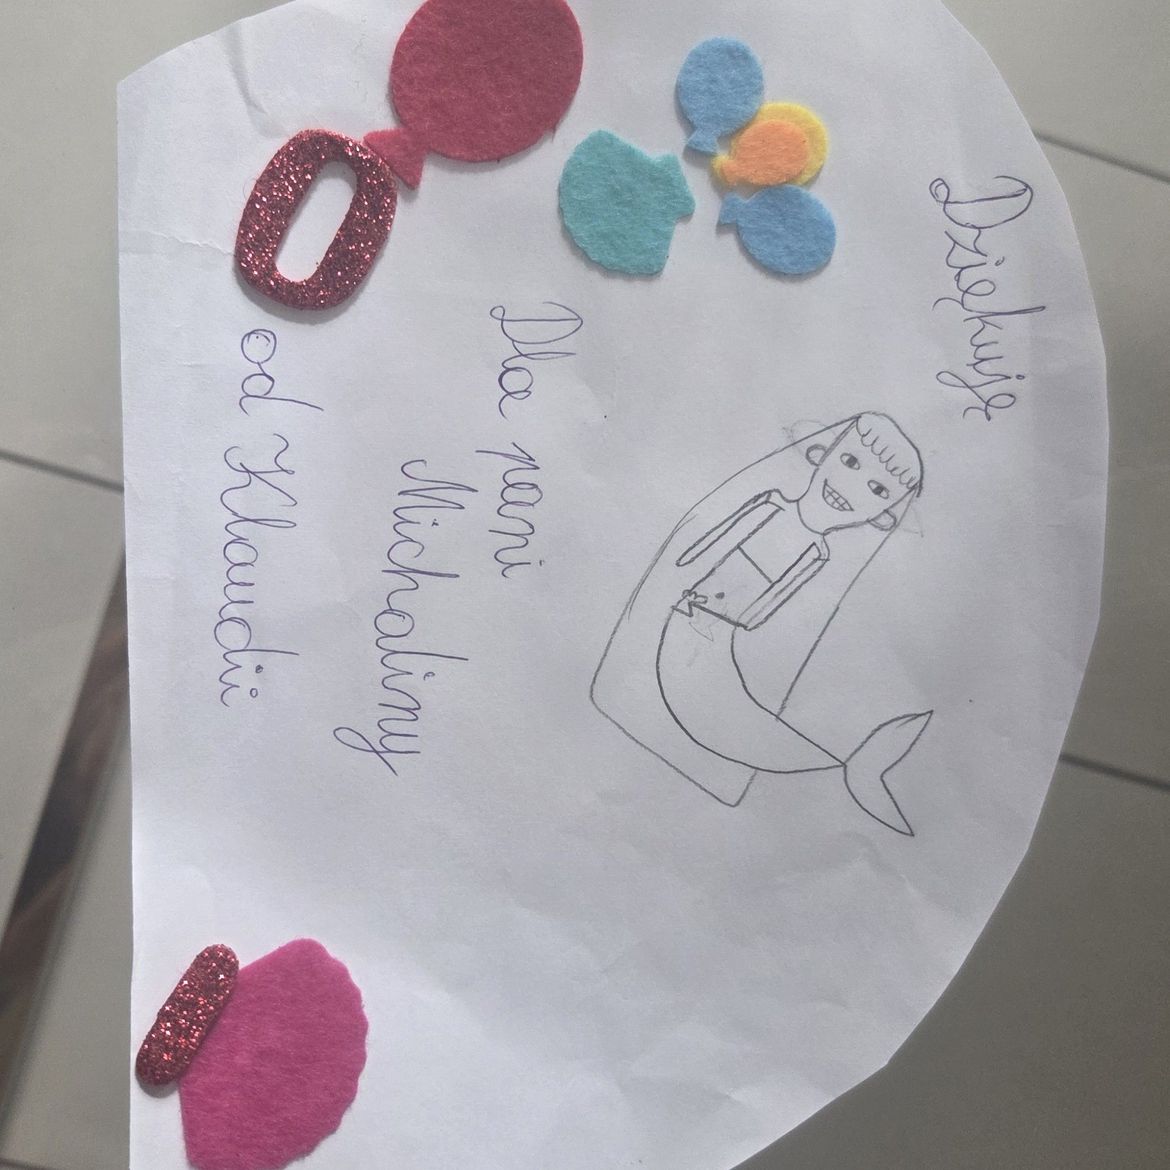 Dziękuje
Dla pani
Michaliny
od Klaudii
0